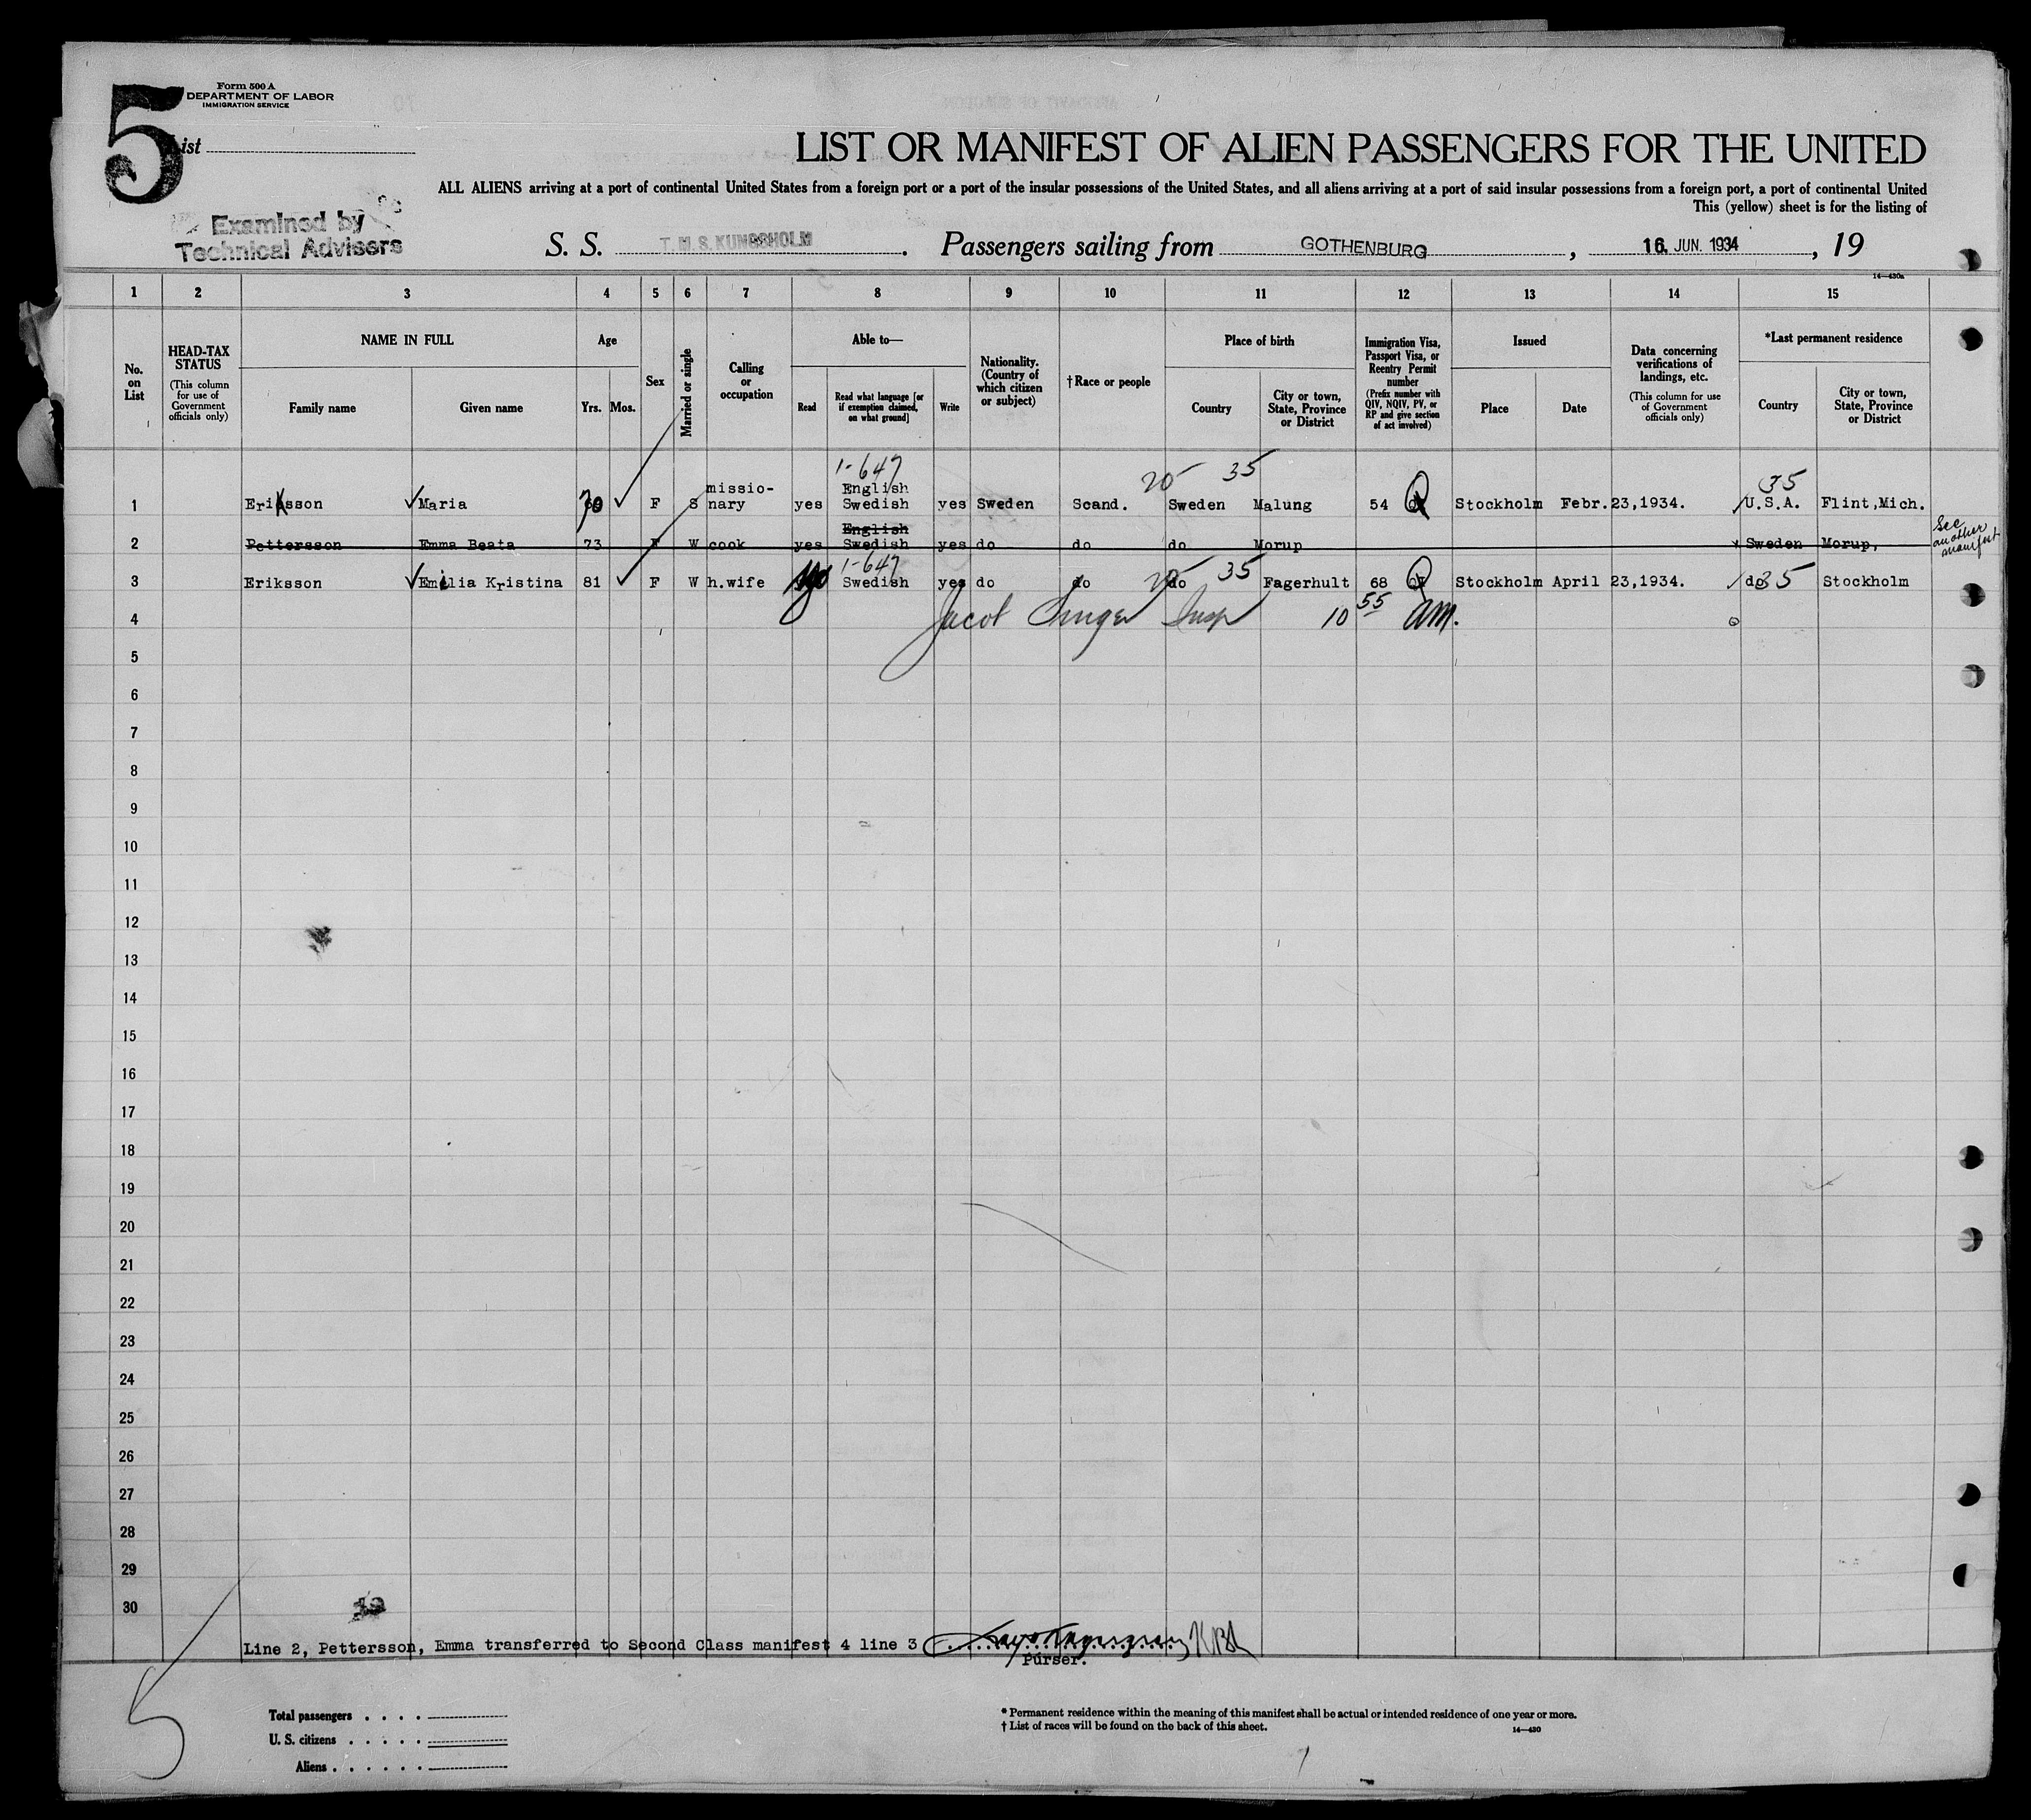 5
Form 500 A
DEPARTMENT OF LABOR
IMMIGRATION SERVICE
List
LIST OR MANIFEST OF ALIEN PASSENGERS FOR THE UNITED
ALL ALIENS arriving at a port of continental United States from a foreign port or a port of the insular possessions of the United States, and all aliens arriving at a port of said insular possessions from a foreign port, a port of continental United
This (yellow) sheet is for the listing of
Examined by
Technical Advisers
S. S. T.M.S. KUNGSHOLM. Passengers sailing from GOTHENBURG, 16. JUN. 1934, 19
14—430a
1 2 3 4 5 6 7 8 9 10 11 12 13 14 15
No. on List
HEAD-TAX STATUS (This column for use of Government officials only)
NAME IN FULL
Family name Given name
Age
Yrs. Mos.
Sex
Married or single
Calling or occupation
Able to—
Read Read what language [or if exemption claimed, on what ground] Write
Nationality. (Country of which citizen or subject)
†Race or people
Place of birth
Country City or town, State, Province or District
Immigration Visa, Passport Visa, or Reentry Permit number (Prefix number with QIV, NQIV, PV, or RP and give section of act involved)
Issued
Place Date
Data concerning verifications of landings, etc. (This column for use of Government officials only)
*Last permanent residence
Country City or town, State, Province or District
1-647 20 35 35
missio- English
1 Eriksson Maria 70 F S nary yes Swedish yes Sweden Scand. Sweden Malung 54 Stockholm Febr.23,1934. U.S.A. Flint,Mich.
English
2 Pettersson Emma Beata 73 F W cook yes Swedish yes do do do Morup Sweden Morup,
See another manifest
1-647 20 35 35
3 Eriksson Emilia Kristina 81 F W h.wife Swedish yes do do do Fagerhult 68 Stockholm April 23,1934. do Stockholm
4 Jacob Insp 10 55 am.
5
6
7
8
9
10
11
12
13
14
15
16
17
18
19
20
21
22
23
24
25
26
27
28
29
30
Line 2, Pettersson, Emma transferred to Second Class manifest 4 line 3
Purser.
5
Total passengers
U. S. citizens
Aliens
* Permanent residence within the meaning of this manifest shall be actual or intended residence of one year or more.
† List of races will be found on the back of this sheet.
14—430